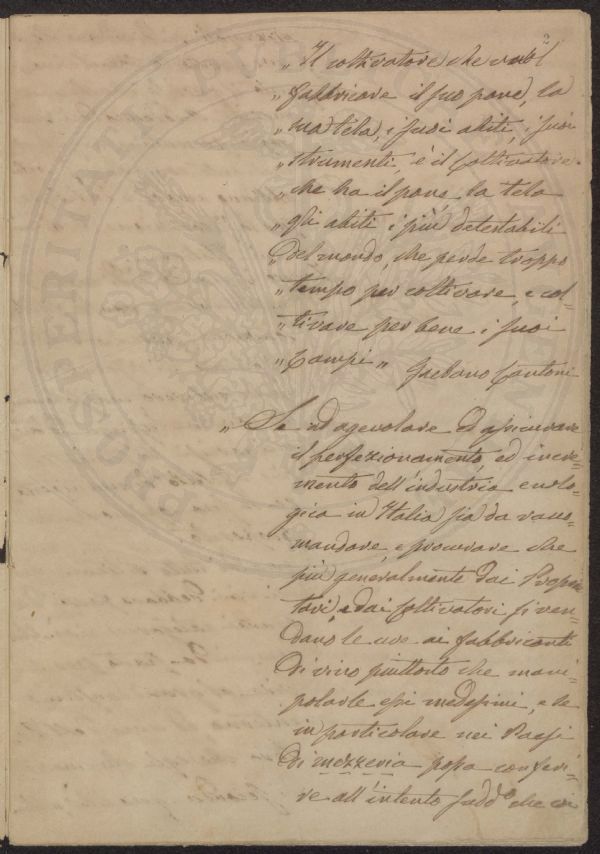 2
„ Il coltivatore che vuol
„ fabbricare il suo pane, la
„ sua tela, i suoi abiti, i suoi
„ strumenti, è il coltivatore
„ che ha il pane, la tela
„ gli abiti i più detestabili
„ del mondo, che perde troppo
„ tempo per coltivare, e col=
„ tivare per bene i suoi
„ Campi „ Gaetano Cantoni
„ Se ad agevolare ed assicurare
il perfezionamento, ed incre=
mento dell'industria enolo=
gica in Italia sia da racco=
mandare, e procurare che
più generalmente dai Proprie
tari, e dai Coltivatori si ven=
dano le uve ai fabbricanti
di vino piuttosto che mani=
polarle essi medesimi, e se
in particolare nei Paesi
di mezzeria possa conferi=
re all'intento sudd.o che vi
PROSPERITA